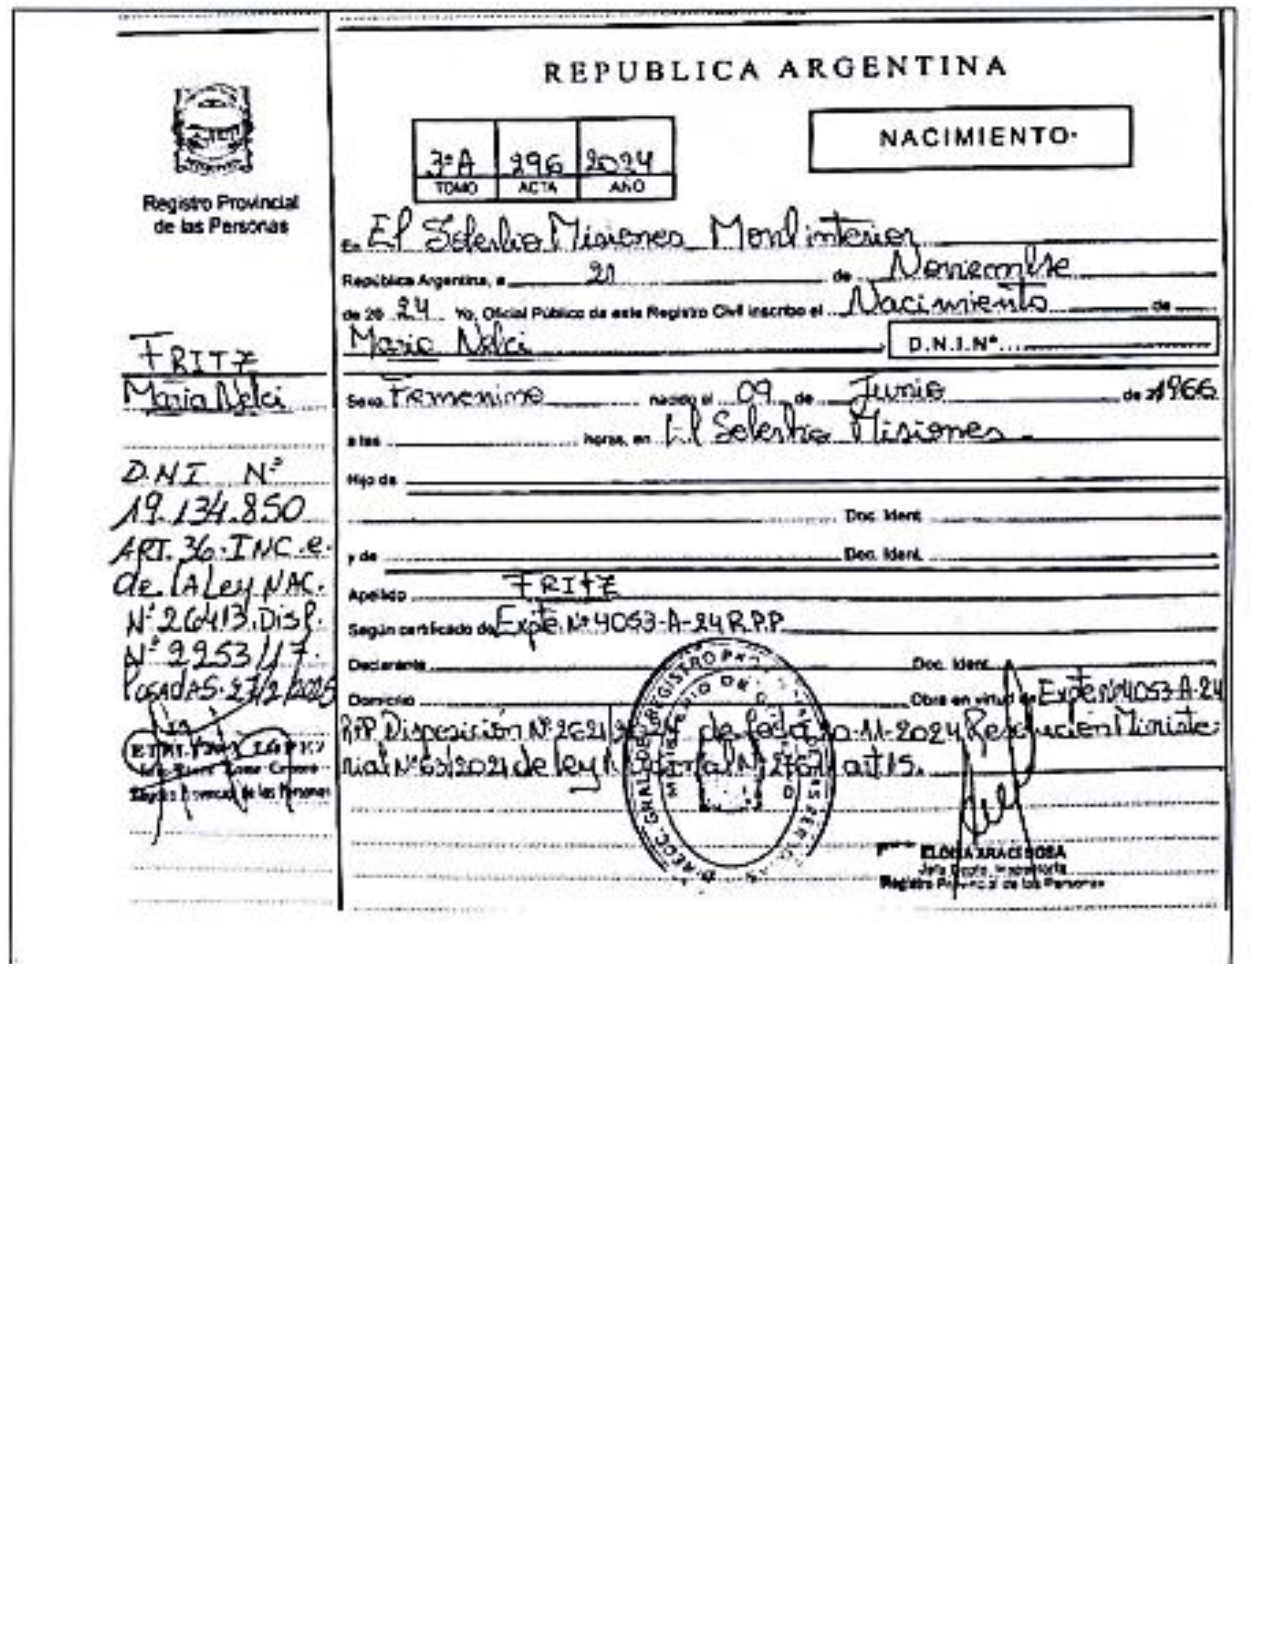 REPUBLICA ARGENTINA
NACIMIENTO
3ºA 296 2024
TOMO ACTA AÑO
Registro Provincial
de las Personas
En El Soberbio Misiones Monl interior
República Argentina, a 21 de Noviembre
de 20 24 Yo, Oficial Público de este Registro Civil inscribo el Nacimiento de
Maria Nelci D.N.I.Nº
Sexo Femenino nacido el 09 de Junio de 1966
a las horas, en El Soberbio Misiones
Hijo de
Doc. Ident.
y de Doc. Ident.
Apellido FRITZ
Según certificado de Expte. Nº 4053-A-24 R.P.P
Declarante Doc. Ident.
Domicilio Obra en virtud de Expte Nº 4053-A-24
R.P.P. Disposición Nº 2621 de fecha 11-2024 Resolucion Ministe
rial Nº 63/2021 de ley art 15.
ELODIA ARACI
Jefa Dpto.
Registro Provincial de las Personas
FRITZ
Maria Nelci
D.N.I Nº
19.134.850
ART. 36. INC. e.
de LA Ley NAC.
Nº 26413. Disp.
Nº 2253/17.
POSADAS. 27/2/2025
LOPEZ
Registro Provincial de las Personas